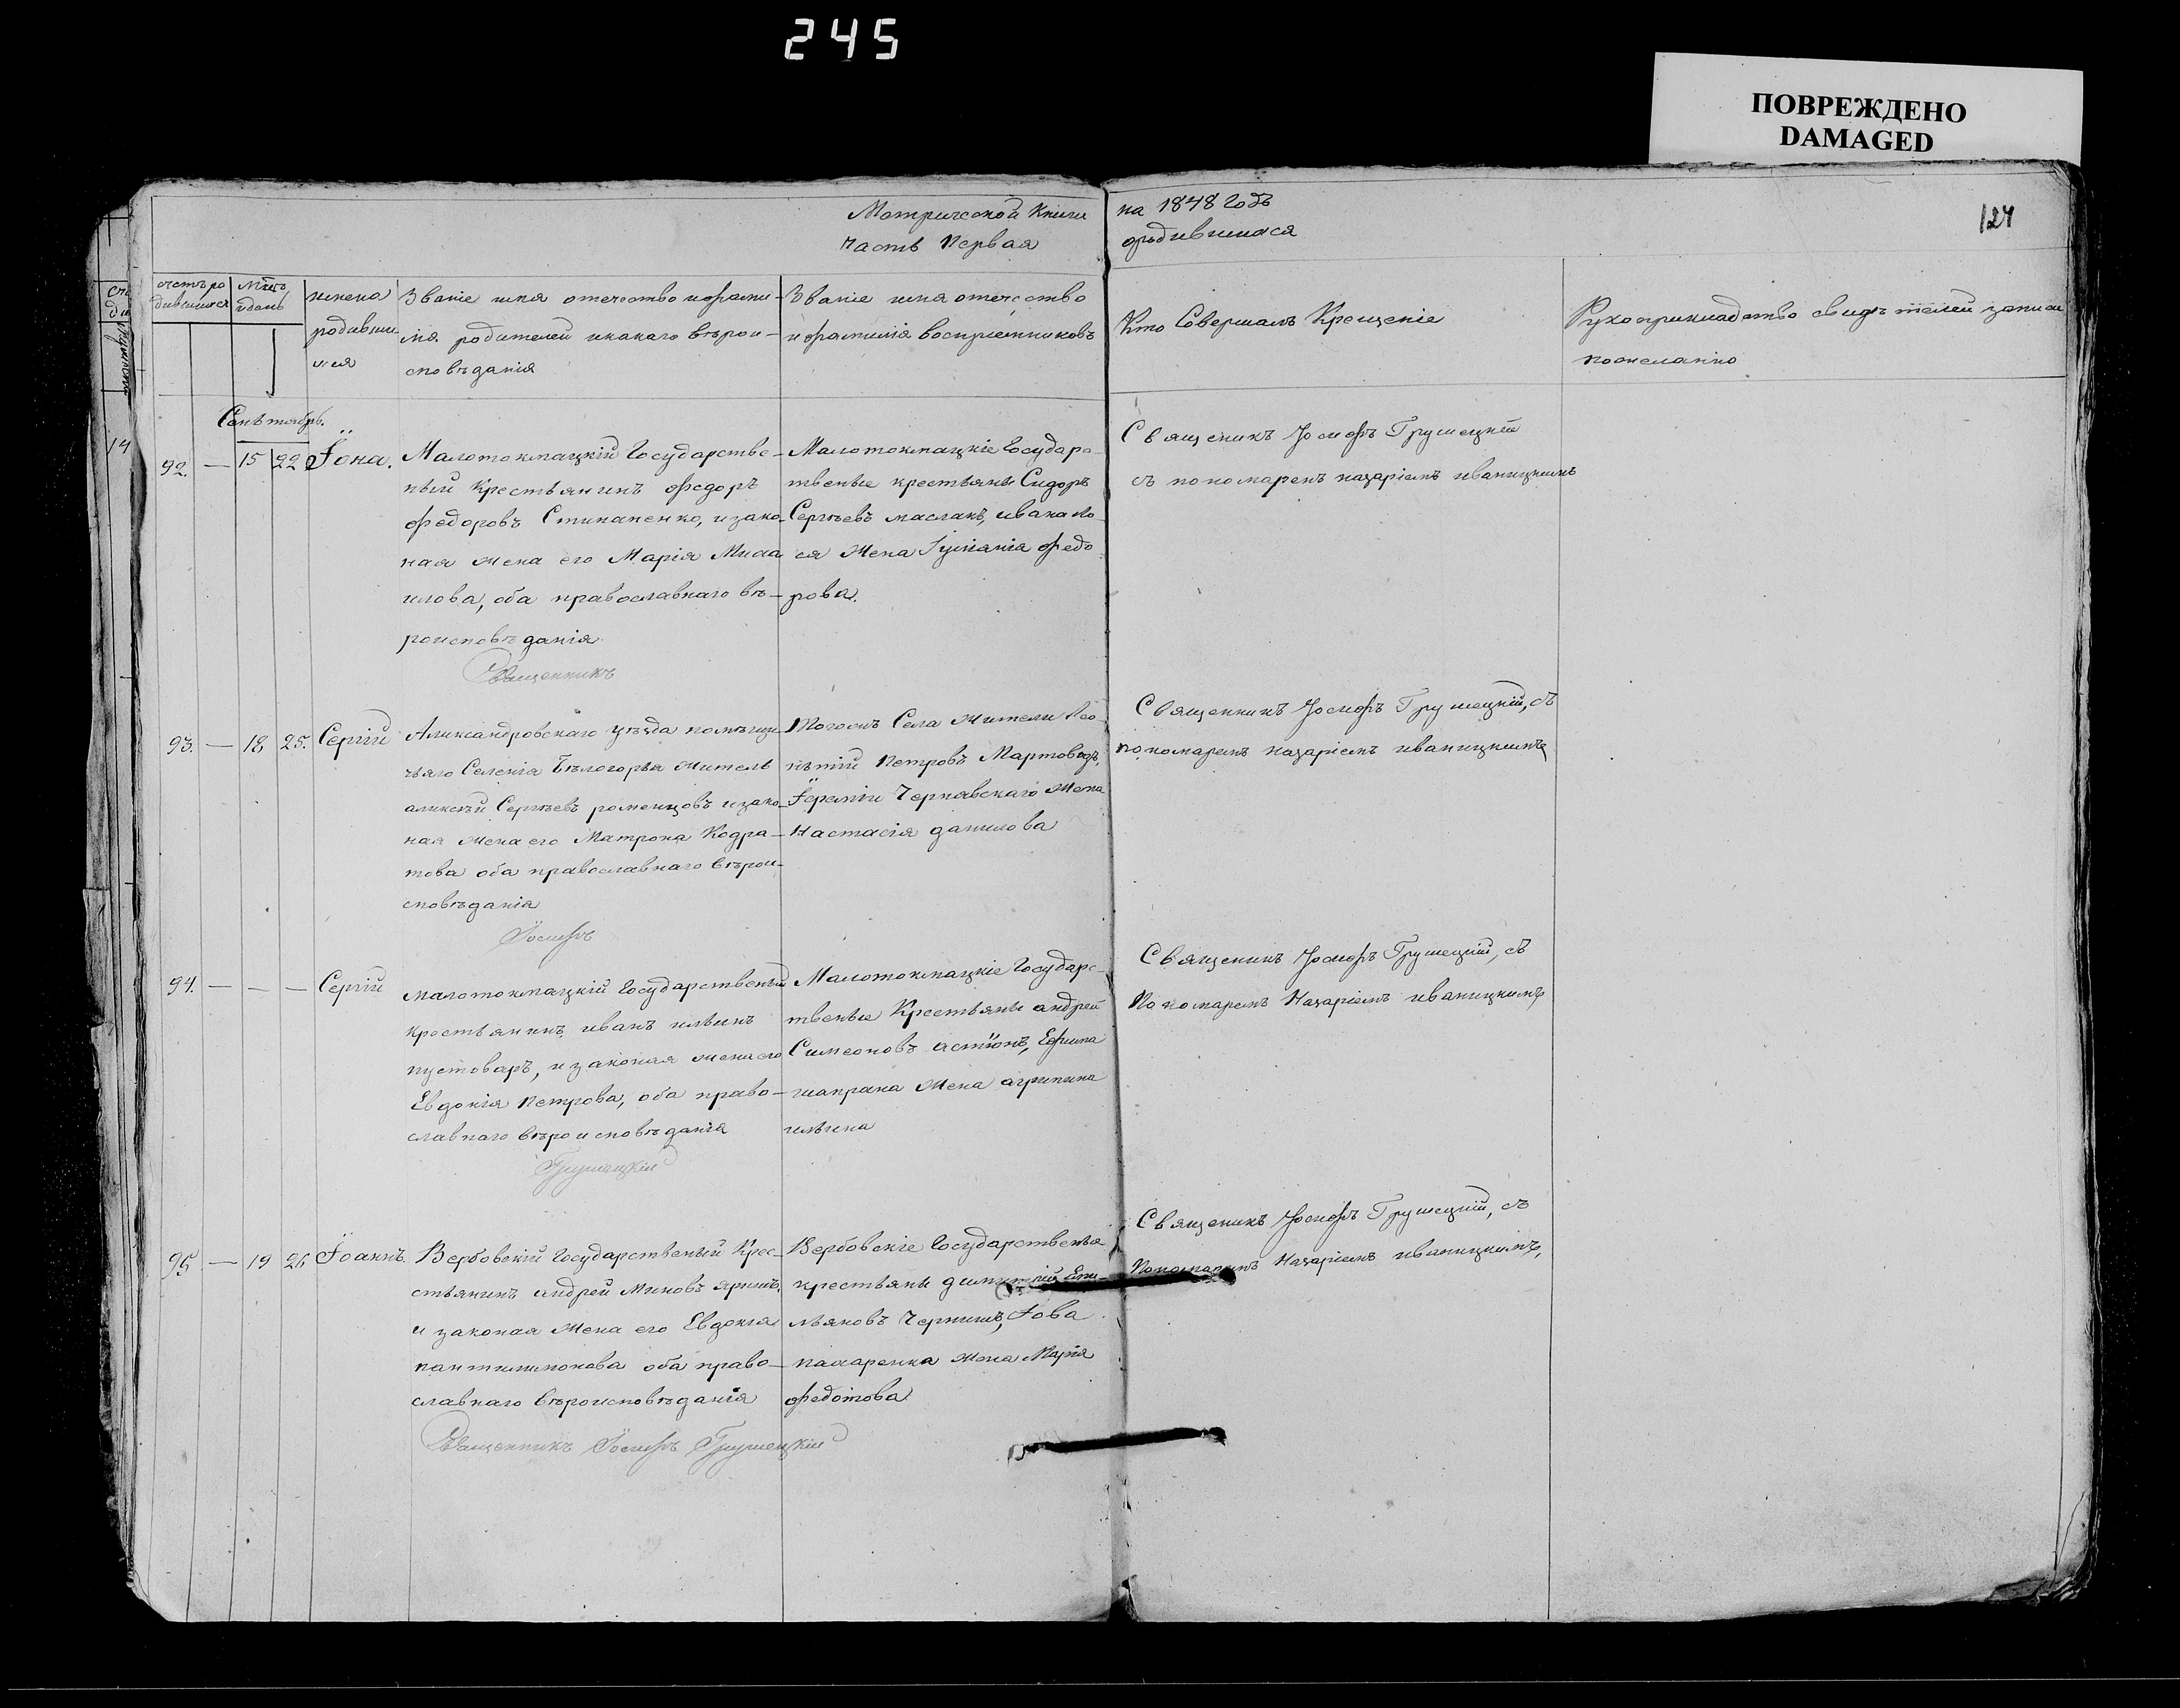 245
ПОВРЕЖДЕНО
DAMAGED
Метрической Книги
на 1848 Годъ
124
часть Первая
ородившихся
счетъ ро
дившихся
Мѣсц.
и день
имена
родивши
ихся
Званіе имя отечество ифами-
лія родителей икакаго вѣрои-
сповѣданія
Званіе имя отечество
ифамилія воспріемниковъ
Кто Совершалъ Крещеніе
Рукоприкладство свидѣтелей записи
пожеланію
Сентябрь.
92. — 15 22 Іона.
Малотокмацкій Государстве-
ный Крестьянинъ федоръ
федоровъ Стипаненко, изако-
ная жена его Марія Миха
илова, оба православнаго вѣ-
роисповѣданія
Священникъ
Малотокмацкіе Государс-
твеные крестьяны Сидоръ
Сергѣевъ маслакъ, ивана Ло
ся жена Іуліанія федо
рова.
Священикъ Іосифъ Грушецкій
съ пономаремъ назаріемъ иваницкимъ
93. — 18 25. Сергій
Александровскаго уѣзда помѣщи-
чьяго Селенія Бѣлогорья житель
аликсѣй Сергѣевъ роменцовъ изако-
ная жена его Матрона Кодра-
това оба православнаго вѣрои-
сповѣданія
Іосифъ
Тогожъ Села жители Лео-
нтій Петровъ Мартоводъ,
Іереміи Чернявскаго жена
Настасія данилова
Священникъ Іосифъ Грушецкій, съ
пономаремъ назаріемъ иваницкимъ
94. — — — Сергій
малотокмацкій Государственый
крестьянинъ иванъ ильинъ
пустоваръ, изаконая жена его
Евдокія Петрова, оба право-
славнаго вѣроисповѣданія
Грушецкій
Малотокмацкіе Государс-
твеные Крестьяны андрей
Симеоновъ Ефима
шапрана жена агрипина
ильина
Священикъ Іосифъ Грушецкій, съ
Пономаремъ Назаріемъ иваницкимъ
95. — 19 26 Іоаннъ.
Вербовскій Государственый Крес-
стьянинъ андрей Миновъ яришъ,
и законая жена его Евдокія
пантилимонова оба право-
славнаго вѣроисповѣданія
Священникъ Іосифъ Грушецкій
Вербовскіе Государственые
крестьяны димитрій Еми-
льяновъ Чернишъ, Іова
назаренка жена Марія
федотова
Священикъ Іосифъ Грушецкій, съ
Пономаремъ Назаріемъ иваницкимъ,